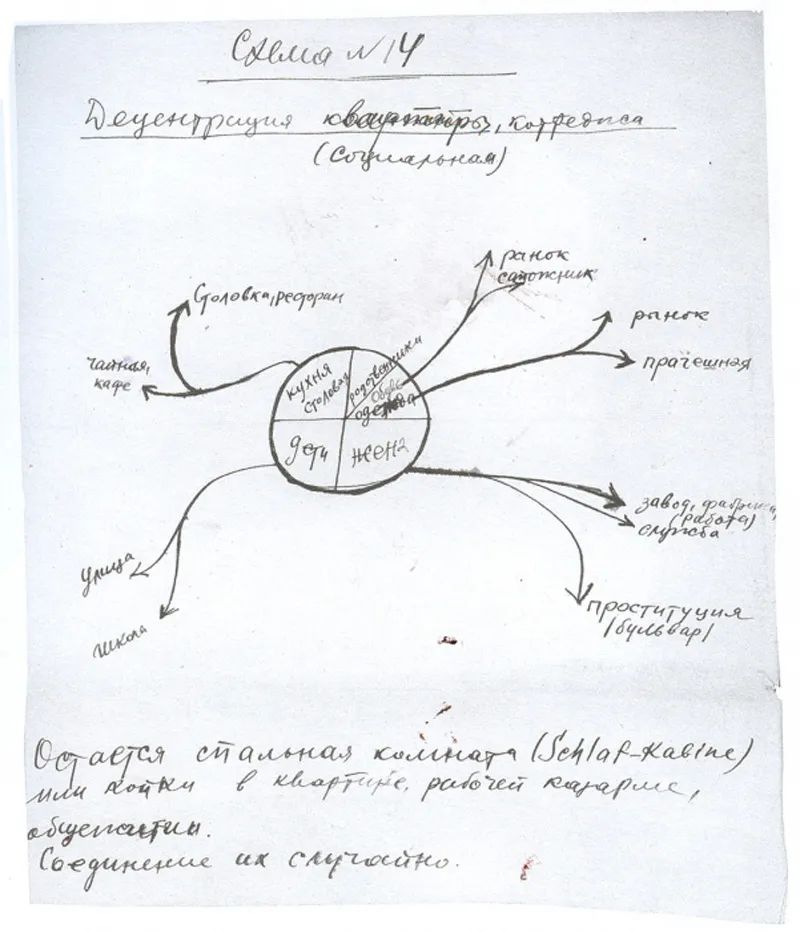 Схема N 14
Децентрация квартиры, коттеджа
(Социальная)
ранок
сапожник
Столовка, ресторан
рынок
чайная,
кафе
прачешная
кухня
столовая
родственники
обувь
одежда
дети
жена
завод, фабрика,
(работа)
служба
улица
проституция
(бульвар)
школа
Остается спальная комната (Schlaf-Kabine)
или койки в квартире, рабочей казарме,
общежитии.
Соединение их случайно.